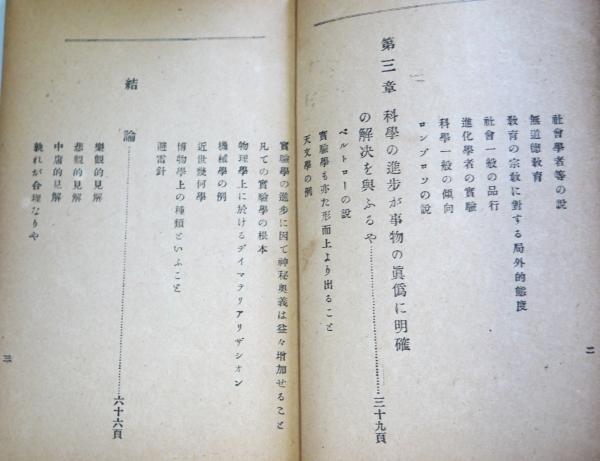 社會學者等の說
無道德敎育
敎育の宗敎に對する局外的態度
社會一般の品行
進化學者の實驗
科學一般の傾向
ロンブロゾの說
第三章 科學の進步が事物の眞僞に明確
の解决を與ふるや……三十九頁
ベルトローの說
實驗學も亦た形而上より出ること
天文學の例
二
實驗學の進步に因て神秘奥義は益々增加せること
凡ての實驗學の根本
物理學上に於けるデイマテリアリザシオン
機械學の例
近世幾何學
博物學上の種類といふこと
避雷針
結論……六十六頁
樂觀的見解
悲觀的見解
中庸的見解
孰れが合理なりや
三